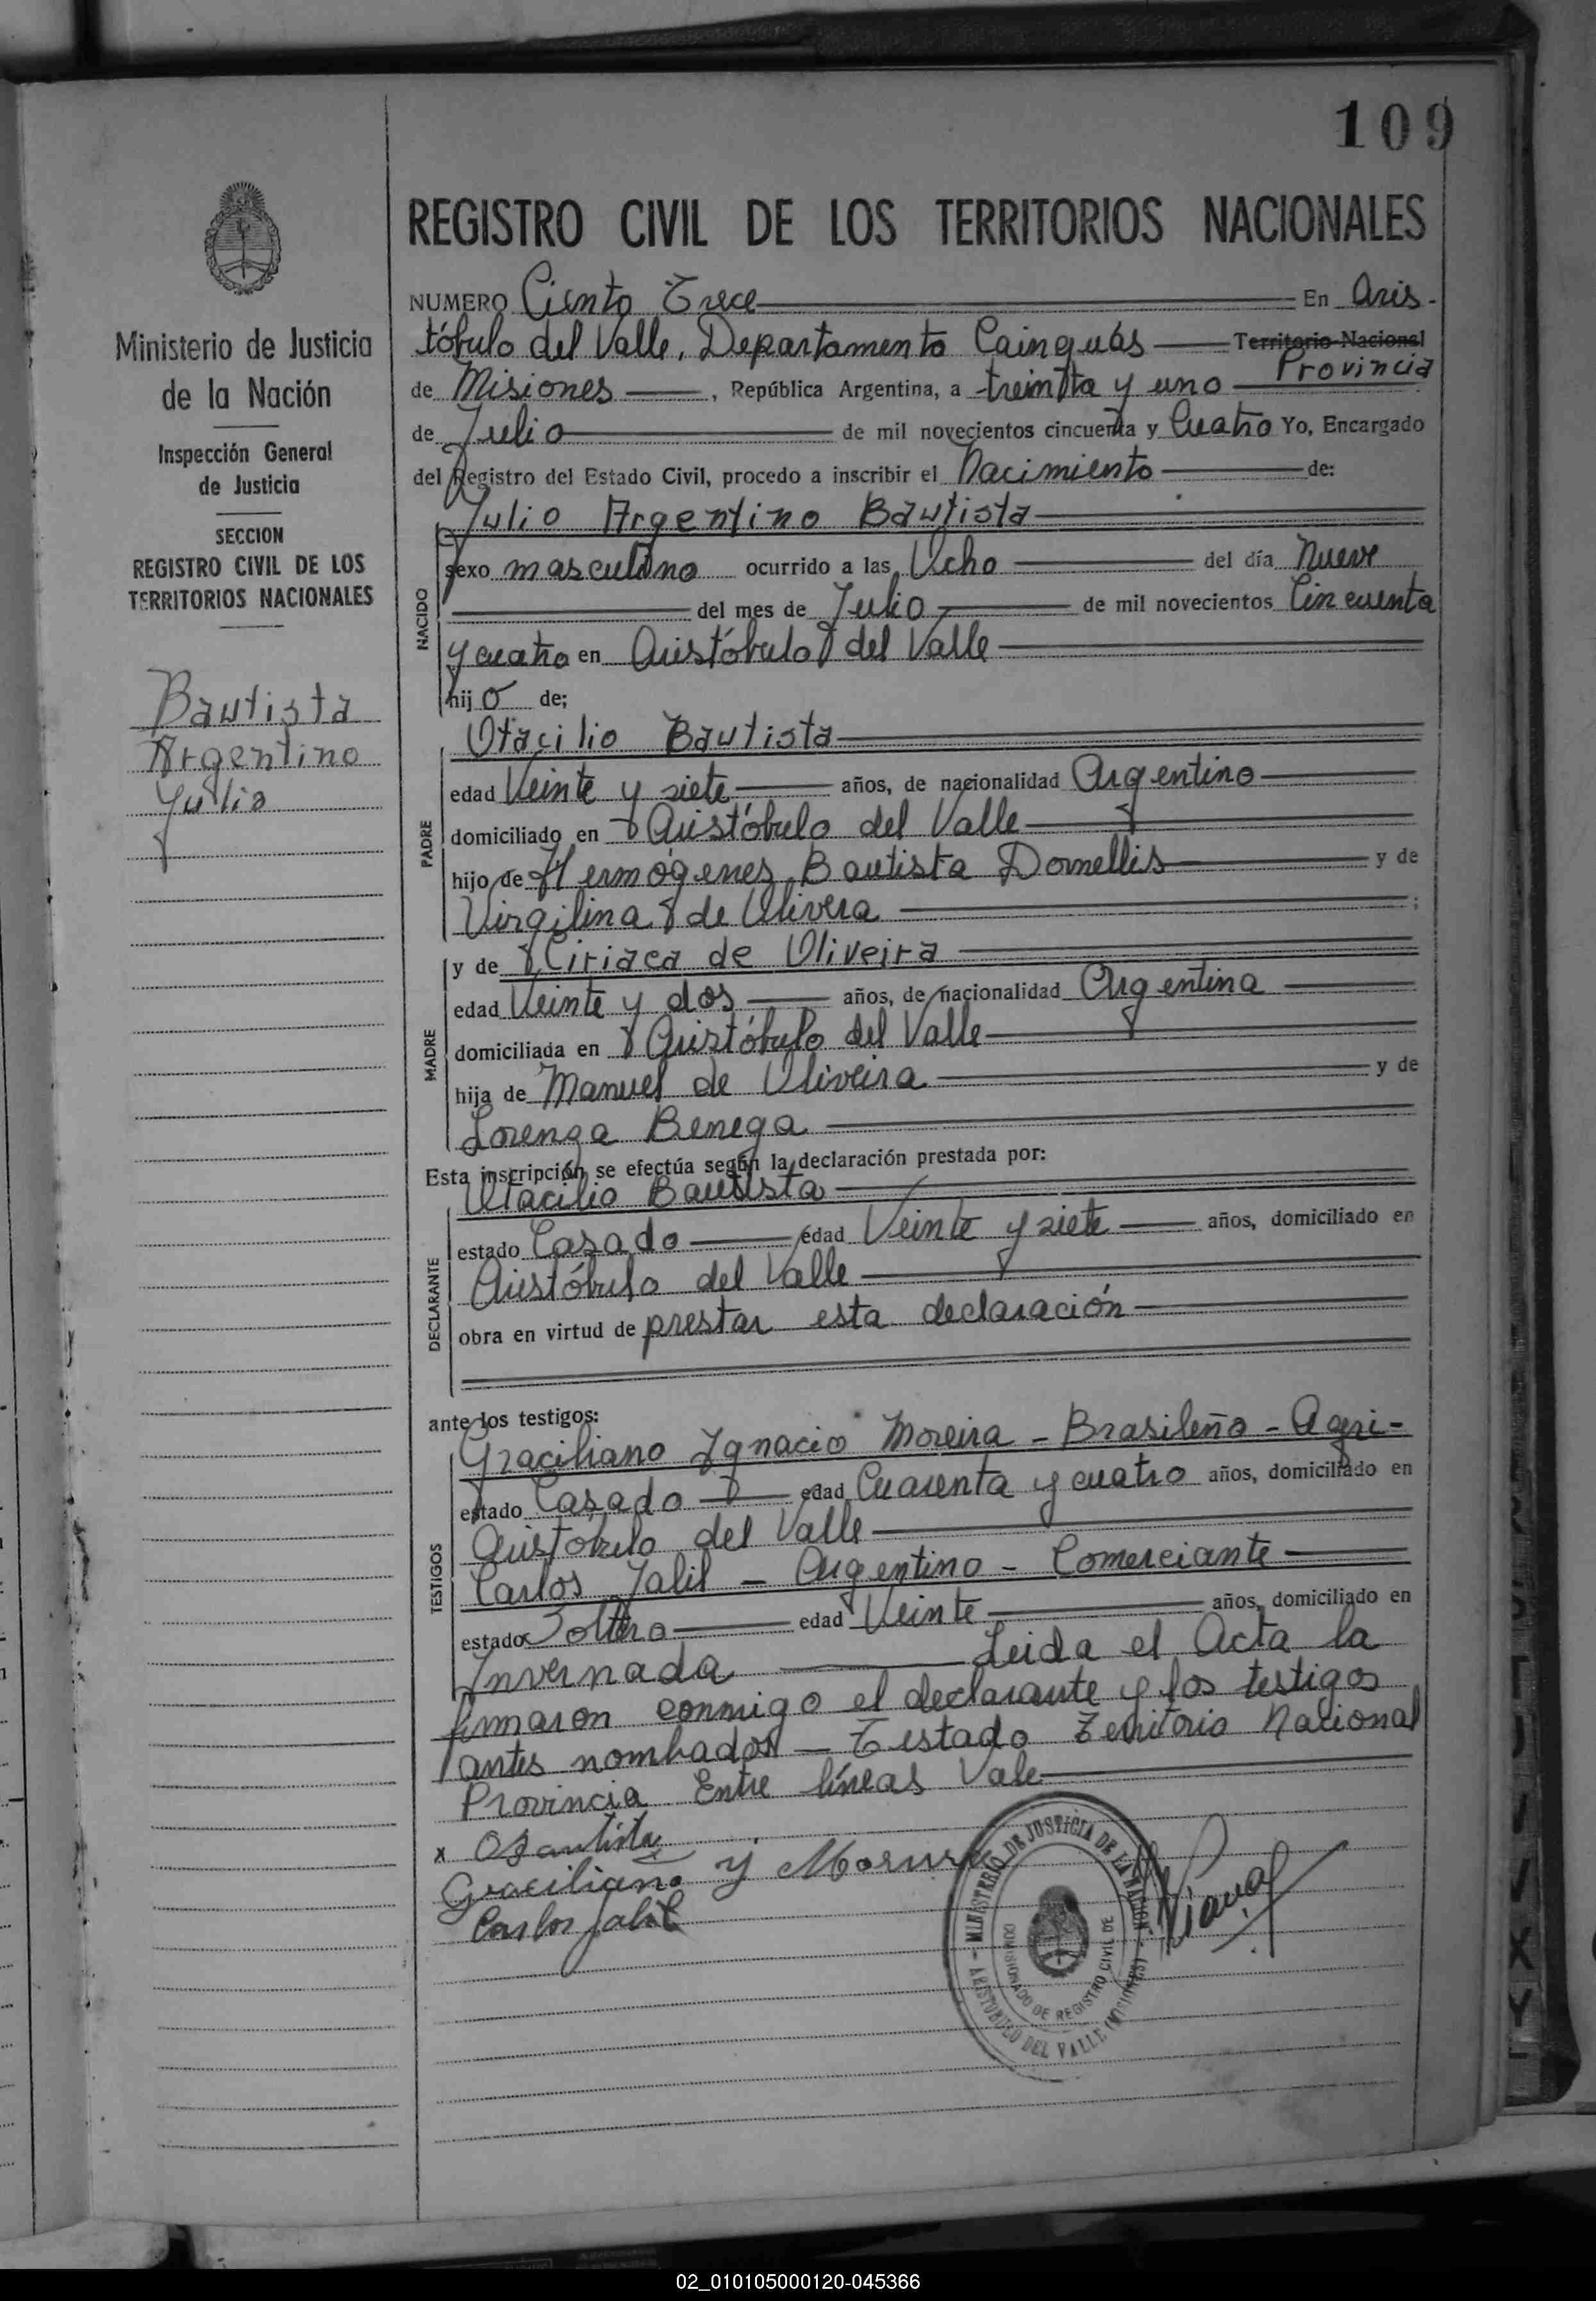 109
Ministerio de Justicia
de la Nación
Inspección General
de Justicia
SECCION
REGISTRO CIVIL DE LOS
TERRITORIOS NACIONALES
Bautista
Argentino
Julio
REGISTRO CIVIL DE LOS TERRITORIOS NACIONALES
NUMERO Ciento Trece En Aris-
tóbulo del Valle, Departamento Cainguás Territorio Nacional
Provincia
de Misiones, República Argentina, a treinta y uno
de Julio de mil novecientos cincuenta y Cuatro Yo, Encargado
del Registro del Estado Civil, procedo a inscribir el Nacimiento de:
NACIDO
Julio Argentino Bautista
sexo masculino ocurrido a las Ocho del día Nueve
del mes de Julio de mil novecientos Cincuenta
y cuatro en Aristóbulo del Valle
hijo de;
PADRE
Otacilio Bautista
edad Veinte y siete años, de nacionalidad Argentino
domiciliado en Aristóbulo del Valle
hijo de Hermógenes Bautista Dornellis y de
Virgilina de Olivera ;
MADRE
y de Ciriaca de Oliveira
edad Veinte y dos años, de nacionalidad Argentina
domiciliada en Aristóbulo del Valle
hija de Manuel de Oliveira y de
Lorenza Benega
Esta inscripción se efectúa según la declaración prestada por:
DECLARANTE
Otacilio Bautista
estado Casado edad Veinte y siete años, domiciliado en
Aristóbulo del Valle
obra en virtud de prestar esta declaración
ante los testigos:
TESTIGOS
Graciliano Ignacio Moreira - Brasileño - Agri-
estado Casado edad Cuarenta y cuatro años, domiciliado en
Aristobulo del Valle
Carlos Jalil - Argentino - Comerciante
estado Soltero edad Veinte años, domiciliado en
Invernada Leida el Acta la
firmaron conmigo el declarante y los testigos
antes nombrados - Testado Territorio Nacional
Provincia Entre líneas Vale
x OBautista
Graciliano Y Morura
Carlos Jalil
- MINISTERIO DE JUSTICIA DE LA NACION -
ARISTOBULO DEL VALLE (MISIONES)
COMISIONADO DE REGISTRO CIVIL DE
02_010105000120-045366